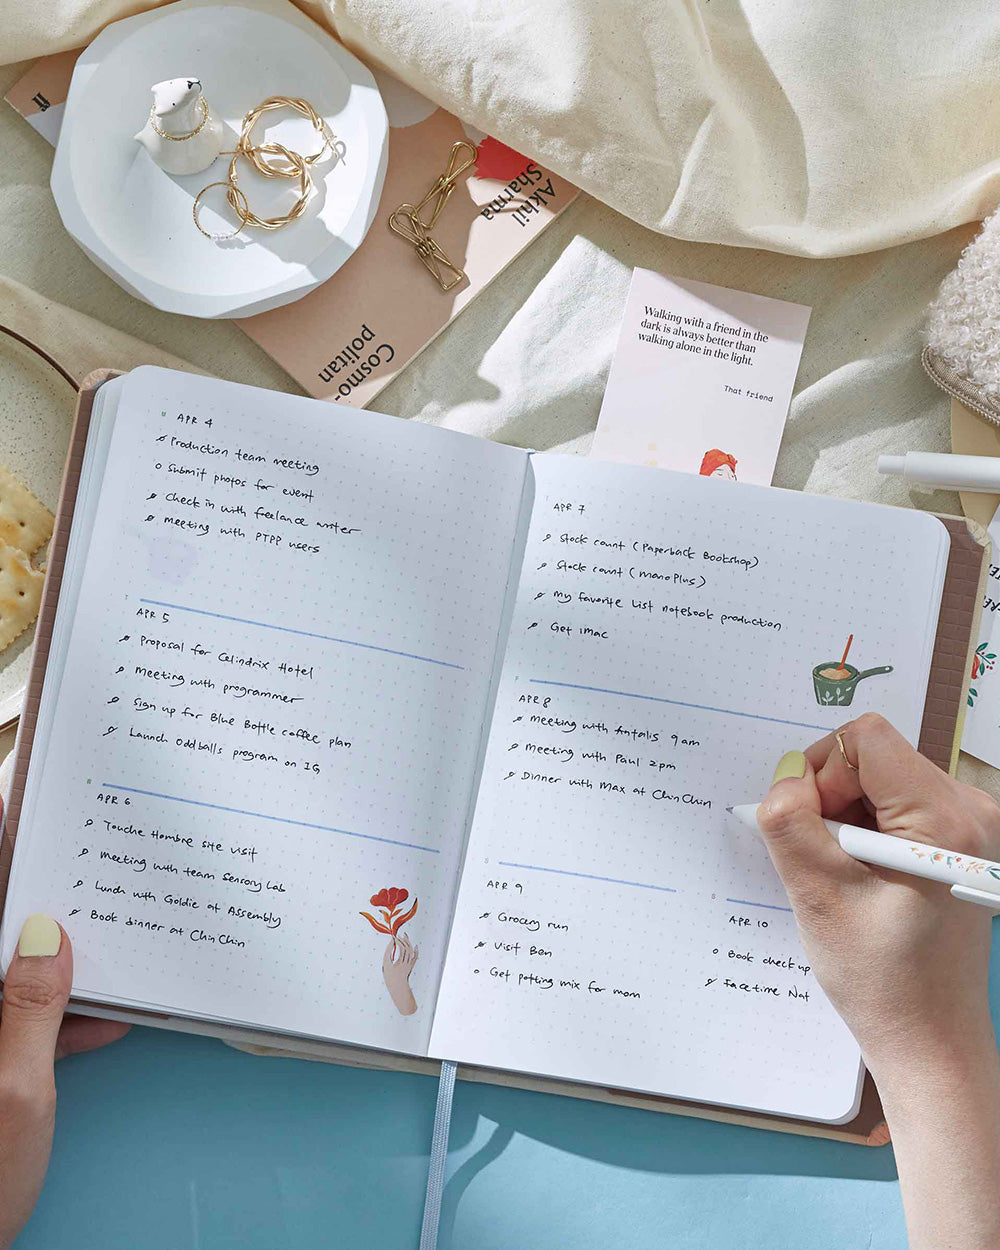 Akhil
Sharma
Cosmo-
politan
Walking with a friend in the
dark is always better than
walking alone in the light.
That friend
M
APR 4
Production team meeting
Submit photos for event
Check in with freelance writer
Meeting with PTPP users
T
APR 5
Proposal for Celindrix Hotel
Meeting with programmer
Sign up for Blue Bottle coffee plan
Launch Oddballs program on IG
W
APR 6
Touche Hombre site visit
Meeting with team Sensory Lab
Lunch with Goldie at Assembly
Book dinner at ChinChin
T
APR 7
Stock count (Paperback Bookshop)
Stock count (ManoPlus)
My favorite List notebook production
Get iMac
F
APR 8
Meeting with Antalis 9am
Meeting with Paul 2pm
Dinner with Max at ChinChin
S
APR 9
Grocery run
Visit Ben
Get potting mix for mom
S
APR 10
Book check up
Facetime Nat